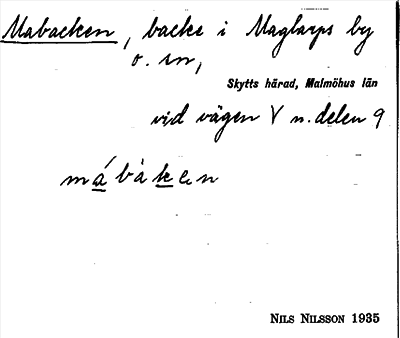 Mabacken, backe i Maglarps by
o. sn,
Skytts härad, Malmöhus län
vid vägen V n. delen 9
mábàken
NILS NILSSON 1935